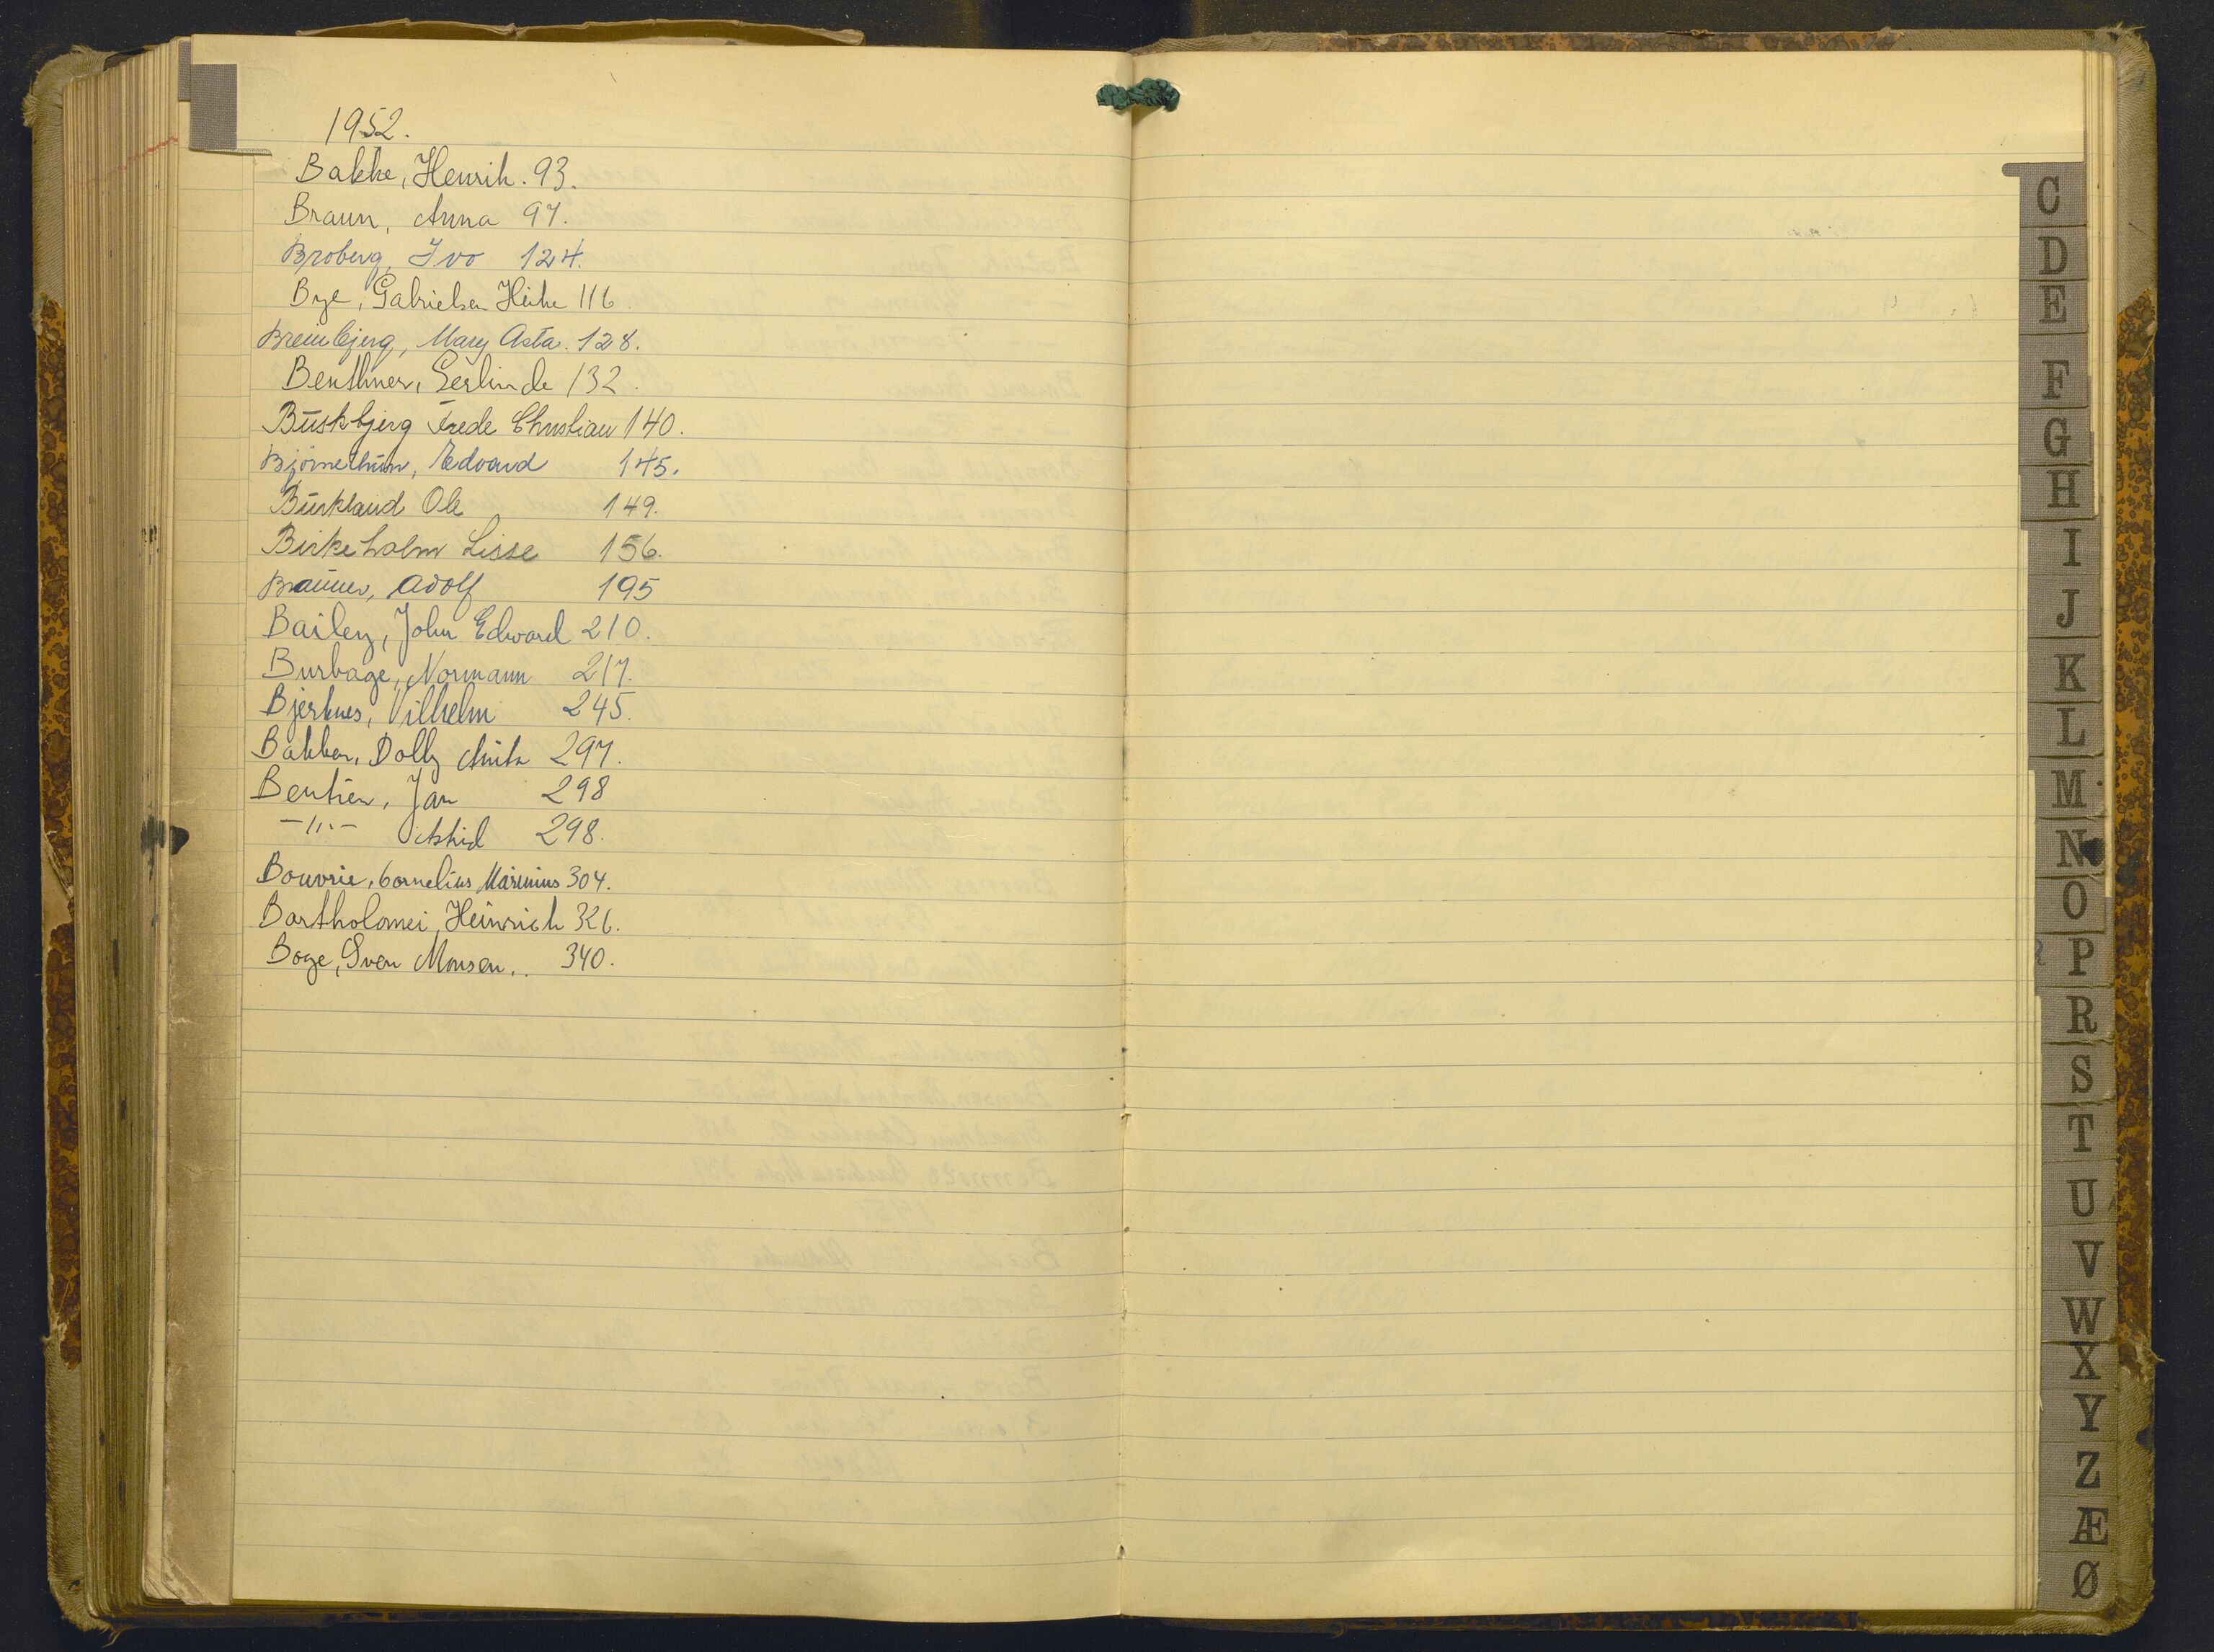 1952.
Bakke, Henrik. 93.
Braun, Anna 97.
Broberg, Ivo 124.
Bye, Gabrielsen Heike 116
Breinbjerg, Mary Asta. 128.
Benthner, Gerlinde 132.
Buskbjerg Frede Christian 140.
Björnethun, Edvard 145.
Burkland Ole 149.
Birkeholm Lisse 156.
Brauner, Adolf 195
Bailey, John Edward 210.
Burbage, Normann 217.
Bjerknes, Vilhelm 245.
Bakker, Dolly Anita 297.
Bentien, Jan 298
-"- Astrid 298.
Bouvrie, Cornelius Marinius 304.
Bartholomei, Heinrich 326.
Boge, Sven Monsen.. 340.
C
D
E
F
G
H
I
J
K
L
M
N
O
P
R
S
T
U
V
W
X
Y
Z
Æ
Ø